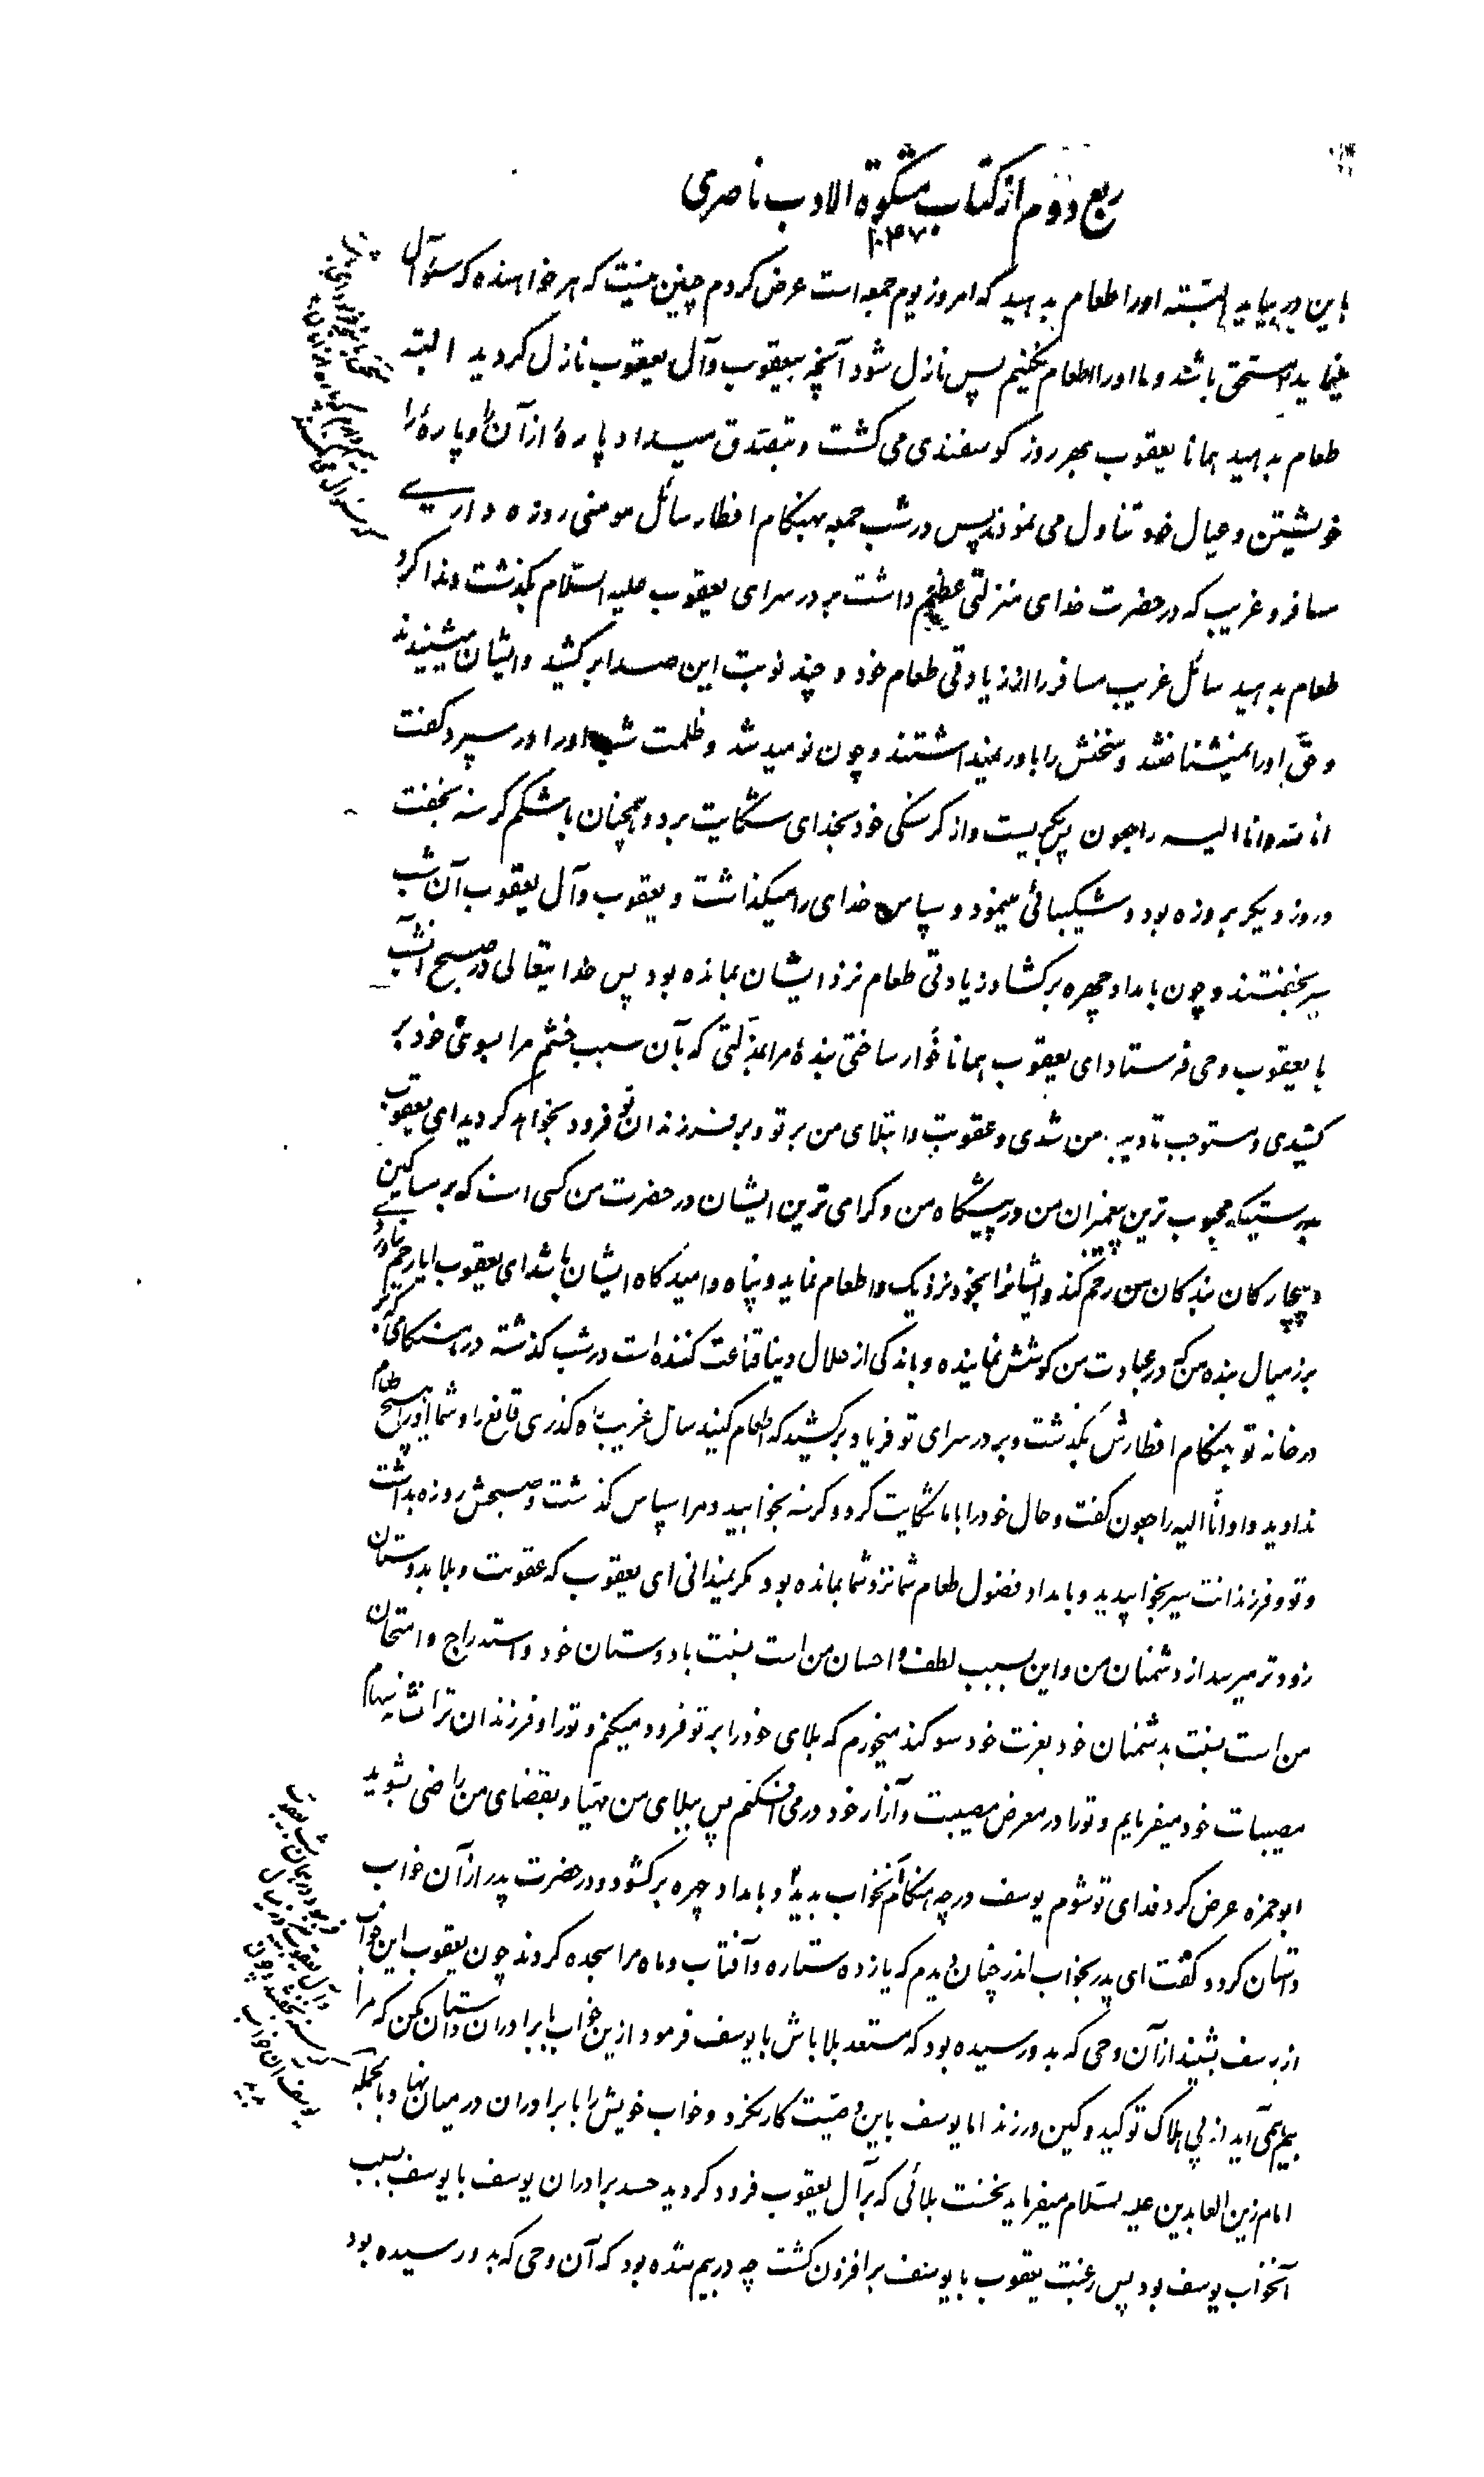 ربع دوم از کتاب مشکوة الادب ناصری
۱۰۴۷۰
باین در بیاید البته او را طعام بدهید که امروز یوم جمعه است عرض کردم چنین نیست که هر خواهنده که سؤال
نماید مستحق باشد و ما او را اطعام نکنیم پس نازل شود آنچه بیعقوب وآل یعقوب نازل کردید البته
طعام بدهید همانا یعقوب بهر روز کوسفندی می کشت و تبصدق میداد پارۀ ازآن را و پارۀ را
خویشتن و عیال خود تناول می نمودند پس در شب جمعه بهنکام افطار سائل مومنی روزه داری
مسافر و غریب که در حضرت خدای منزلتی عظیم داشت بر در سرای یعقوب علیه السلام بکذشت و ندا کرد
طعام بدهید سائل غریب مسافر را از زیادتی طعام خود و چند نوبت این صدا برکشید و ایشان میشنیدند
و حق او را نمیشناختند و سخنش را باور نمیداشتند و چون نومید شد و ظلمت شب او را در سپرد کفت
انا لله وانا الیه راجعون پس بکریست واز کرسنکی خود بخدای شکایت برد و همچنان با شکم کرسنه بخفت
و روز دیکر بروزه بود و شکیبائی مینمود و سپاس خدای را میکذاشت و یعقوب وآل یعقوب آن شب
سیر بخفتند و چون بامداد چهره برکشاد زیادتی طعام نزد ایشان بمانده بود پس خدایتعالی در صبح آنشب
با یعقوب وحی فرستاد ای یعقوب همانا خوار ساختی بندۀ مرا بمذلتی که بآن سبب خشم مرا بسوی خود بر
کشیدی و مستوجب تادیب من شدی و عقوبت و ابتلای من بر تو و بر فرزندان تو فرود بخواهد کردید ای یعقوب
بدرستیکه محبوب ترین پیغمبران من در پیشکاه من و کرامی ترین ایشان در حضرت من کسی است که بر مساکین
و بیچارکان بندکان من رحم کند و ایشانرا بخود نزدیک و اطعام نماید و پناه و امیدکاه ایشان باشد ای یعقوب ایا رحم نیاوردی
بر ذمیال بنده من که در عبادت من کوشش نماینده و باندکی از حلال دنیا قناعت کننده است در شب کذشته در هنکامی که بر
در خانه تو بهنکام افطارش بکذشت و بر در سرای تو فریاد برکشید که اطعام کنید سائل غریب راه کذری قانع را و شما او را هیچ طعام
ندادید و او انا الیه راجعون کفت و حال خود را با ما شکایت کرد و کرسنه بخوابید و مرا سپاس کذاشت و صبحش روزه بداشت
و تو و فرزندانت سیر بخوابیدید و بامداد فضول طعام شما نزد شما بمانده بود مکر نمیدانی ای یعقوب که عقوبت و بلا بدوستان
زودتر میرسد از دشمنان من و این بسبب لطف و احسان من است بنسبت با دوستان خود و استدراج و امتحان
من است بنسبت بدشمنان خود بعزت خود سوکند میخورم که بلای خود را بر تو فرود میکنم و تو را و فرزندان ترا نشانه سهام
مصیبات خود میفرمایم و تو را در معرض مصیبت وآزار خود در می افکنم پس ببلای من مهیا و بقضای من راضی بشوید
ابو حمزه عرض کرد فدای تو شوم یوسف در چه هنکام آنخواب بدید و بامداد چهره برکشود و در حضرت پدر از آن خواب
داستان کرد و کفت ای پدر بخواب اندر چنان دیدم که یازده ستاره وآفتاب و ماه مرا سجده کردند چون یعقوب این خواب
از یوسف بشنید از آن وحی که بدو رسیده بود که مستعد بلا باش با یوسف فرمود از ین خواب با برادران داستان مکن که مرا
بیم همی آید از پی هلاک تو کید و کین ورزند اما یوسف باین وصیت کار نکرد و خواب خویش را با برادران در میان نهاد و بالجمله
امام زین العابدین علیه السلام میفرماید نخست بلائی که برآل یعقوب فرود کردید حسد برادران یوسف با یوسف بسبب
آنخواب یوسف بود پس رغبت یعقوب با یوسف بر افزون کشت چه در بیم شده بود که آن وحی که بدو رسیده بود